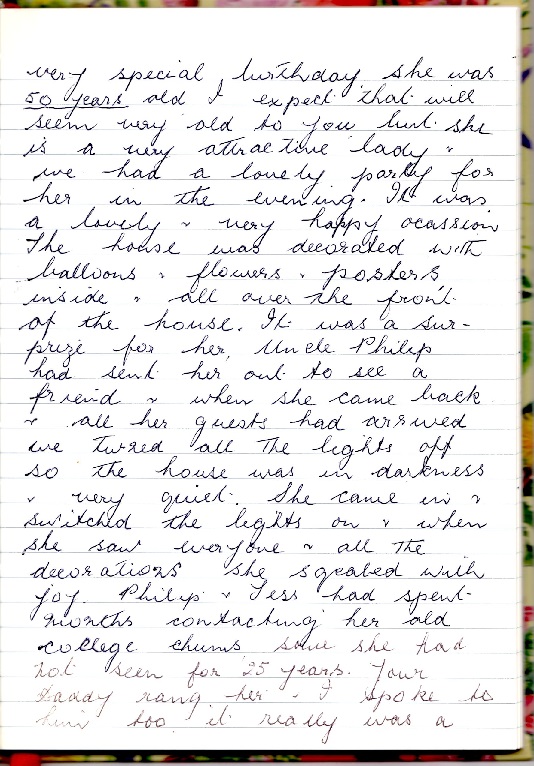 very special birthday she was
50 years old I expect that will
seem very old to you but she
is a very attractive lady &
we had a lovely party for
her in the evening. It was
a lovely & very happy ocassion
The house was decorated with
balloons & flowers & posters
inside & all over the front
of the house. It was a sur-
prize for her, Uncle Philip
had sent her out to see a
friend & when she came back
& all her guests had arrived
we turned all the lights off
so the house was in darkness
& very quiet. She came in &
switched the lights on & when
she saw everyone & all the
decorations she sqealed with
joy. Philip & Tess had spent
months contacting her old
college chums some she had
not seen for 25 years. Your
Daddy rang her & I spoke to
him too it really was a